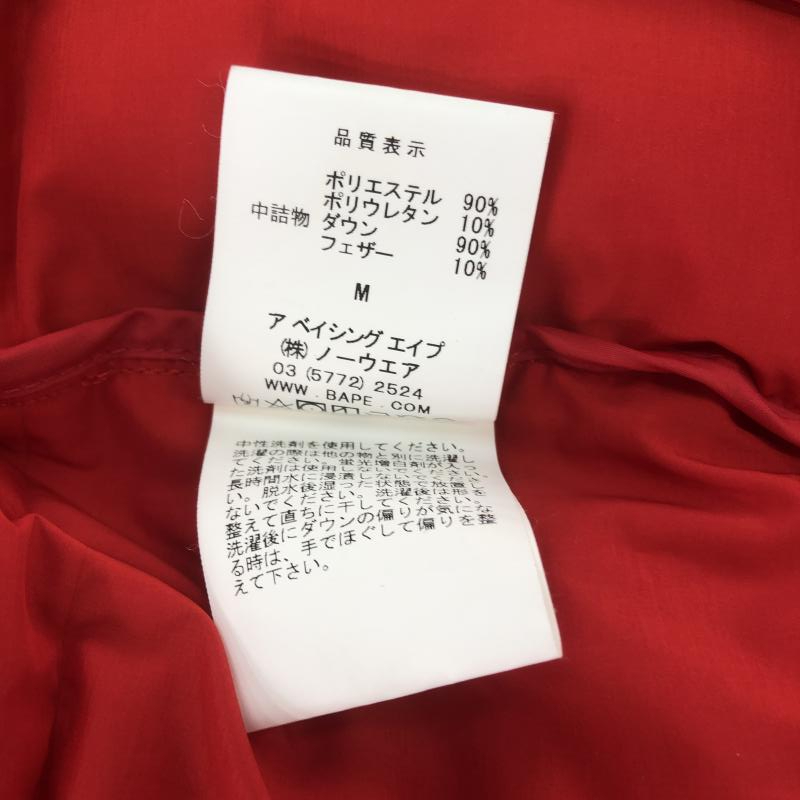 品質表示
ポリエステル 90%
ポリウレタン 10%
中詰物 ダウン 90%
フェザー 10%
M
ア ベイシング エイプ
(株) ノーウエア
03 (5772) 2524
WWW.BAPE.COM
中性洗剤を使用してください。
洗濯の際は他の物と別に洗濯し
てください。蛍光増白剤が入っ
た洗剤は使用しないでくださ
い。長時間水に浸漬
ないでください。洗濯後は形を
整えて直ちに干してください。
洗濯後にダウンの偏りが気にな
る時は、手でほぐして偏りを整
えて下さい。